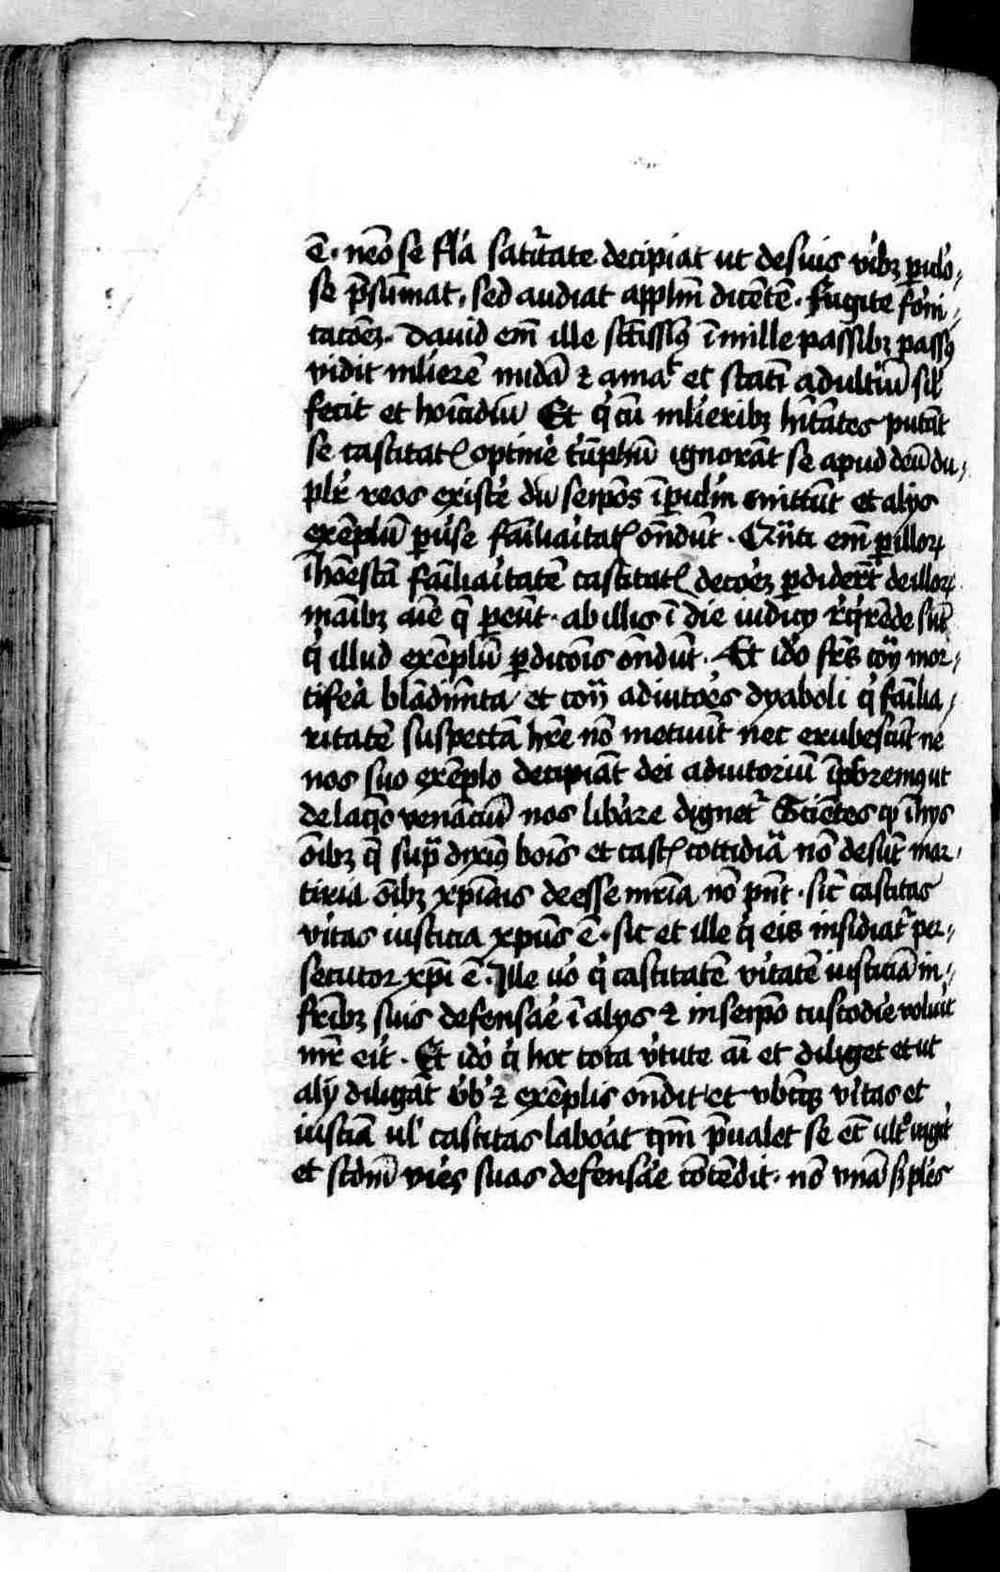 ē · nemo se fl'a sat'itate decipiat ut de suis virib₃ p̱iculo⸗
se p̄sumat, sed audiat applm̄ dicētē · fugite forni⸗
cacōēꝫ · David em̄ ille sc̄tissiꝰ ī mille passib₃ passꝰ
vidit mlierē nudā ⁊ amaͭ et statī adult'iū sil'
fecit et hoīcidiū Et q' cū mlierib₃ hītātes putāt
se castitatꝭ optine' t'umphū ignorāt se apud deū du⸗
pl'r reos existe' dū seip̄os ī p̱icl'm mittūt et alijs
exēplū p̱u'se fa̅iliaritatꝭ on̄dūt · Qn̄ti em̄ p̱ illoꝝ
īhōestā fa̅iliaritatē castitatꝭ decōēꝫ p̱diderūt de illoꝝ
ma̅ib₃ aīe q̄ p̱eūt · ab illis ī die iudicij r'q'rēde sūt
q' illud exēplū p̱dicōīs on̄dūt · Et iḋo fr̄s co̅ij mor⸗
tife'a blādim̄ta et co̅ij adiutoēs dyaboli q' fa̅ilia⸗
ritatē suspectā hr̄e nō metuūt nec erubescūt ne
nos suo exēplo decipiāt dei adiutoriū īplorem₉ ut
de laq̊o venāciū nos liba're dignet᷑ Scientes ꝙ ī hijs
oīb₃ q̄ sup̄ dixim₉ bois et castꝭ cottidia̅ nō desūt mar⸗
tiria oīb₃ xp̄ianis deesse mr̄ia nō pn̄t · sic̄ castitas
v'itas iusticia xpūs ē · sic et ille q' eis insidiat᷑ per⸗
secutor xp̄i ē · Ille u̇o q' castitatē v'itatē iusticiā in⸗
frīb₃ suis defensae' ī alijs ⁊ in seip̄o custodie' voluit
mr̄ erit · Et iḋo q' hoc tota v'tute aī et diliget et ut
alij diligāt v'b' ⁊ exēplis on̄dit et vbīcq₃ v'itas et
iusciā ul' castitas laborāt qm̄ p̄ualet se et̄
et scdm̄ vires suas defensae' cōtēdit · nō vnā ß plēs